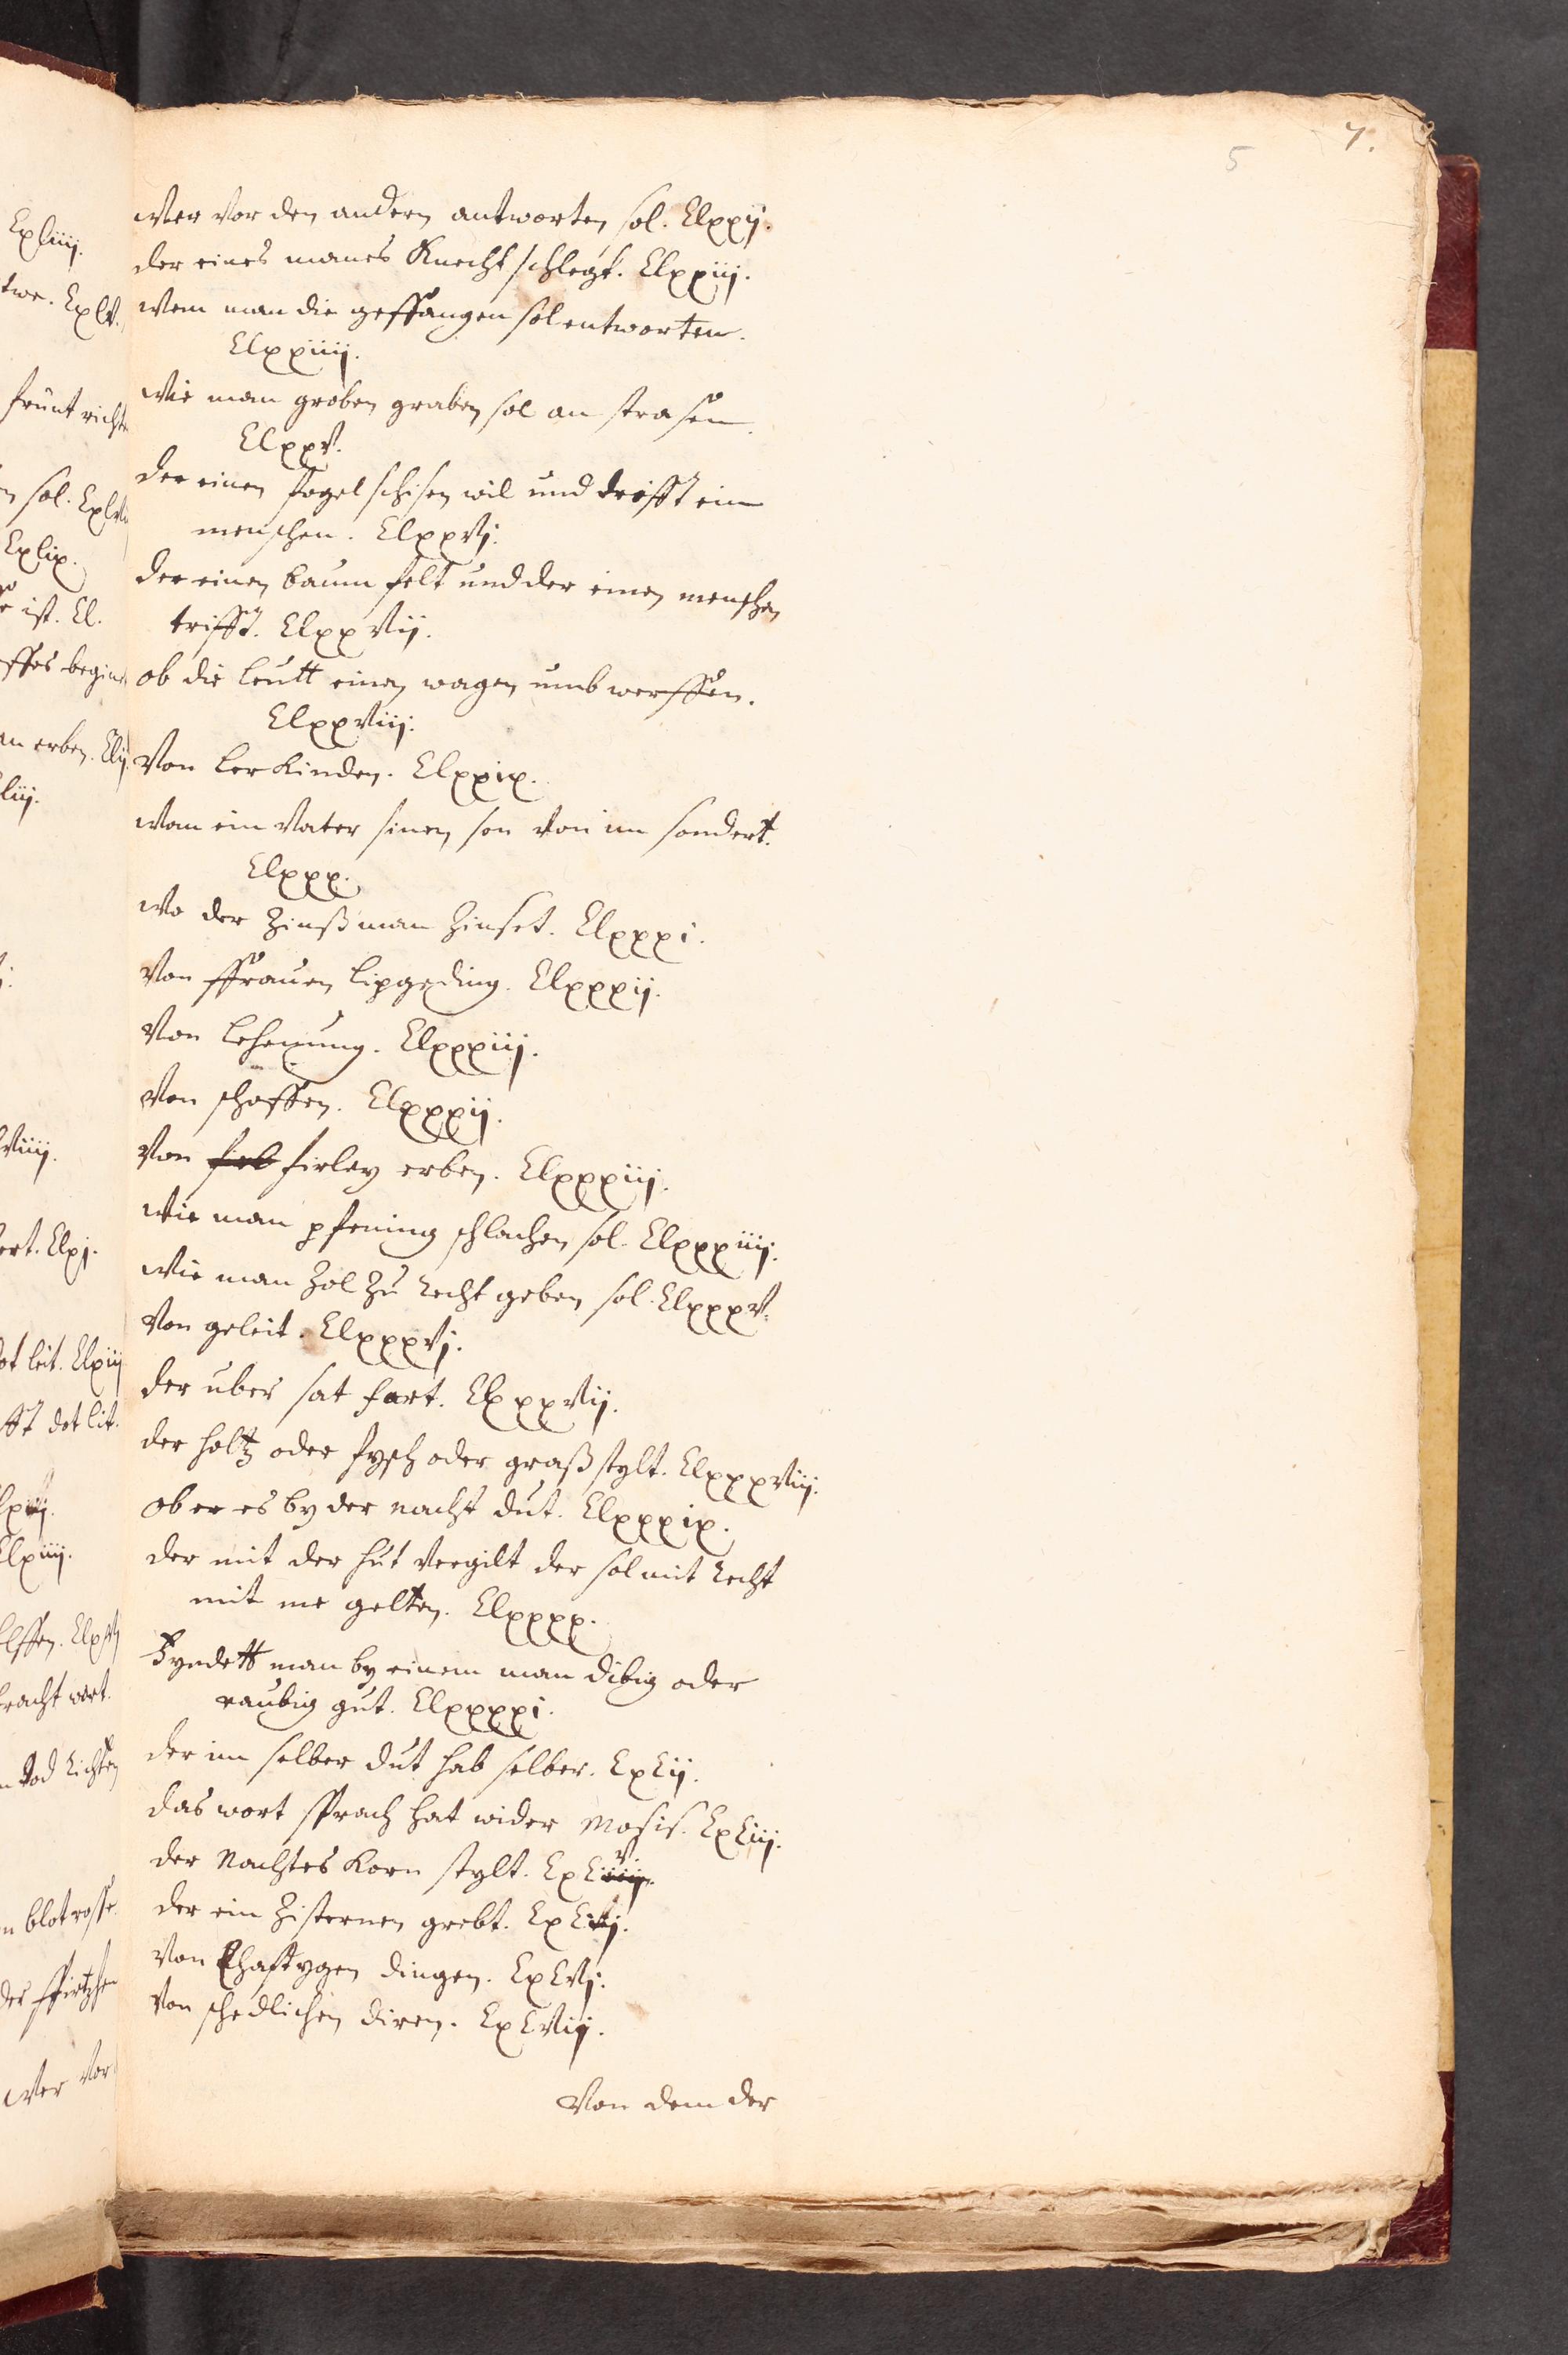 5
7.
Wer vor den andern antworten sol. Clxxij.
der eines manes Knecht schlegt. Clxxiij.
Wem man die geffangen sol entworten.
Clxxiiij.
Wie man groben graben sol an strasen.
Clxxv.
der einen fogel schisen wil und drifft ein
menschen. Clxxvj.
der einen baum felt und der einen menschen
trifft. Clxxvij.
ob die leutt einen wagen umb werffen.
Clxxviij.
Von ler kinden. Clxxix.
Wan ein Vater sinen son von im sondert.
Clxxx.
Wo der Zinßman Zinset. Clxxxi.
Von ffrauen lipgeding. Clxxxij.
Von lehenung. Clxxxiij.
Von schaffen. Clxxxij.
Von firley erben. Clxxxiij.
Wie man pfening schlachen sol. Clxxxiiij.
Wie man Zol Zu recht geben sol. Clxxxv.
Von geleit. Clxxxvj.
der uber sat fart. Clxxxvij.
der holtz oder fysch oder graß stylt. Clxxxviij.
ob er es by der nacht dut. Clxxxix.
der mit der hut vergilt der sol mit recht
mit me gelten. Clxxxx.
Fyndett man by einem man dibig oder
raubig gut. Clxxxxi.
der im selber dut hab selber. CxCij.
das wort sprach hat wider Mosis. CxCiij.
der Nachtes Korn stylt. CxCiiij.
der ein Zisternen grebt.
Von Ehaftygen dingen. CxCvj.
Von schedlichen diren. CxCvij.
Von dem der